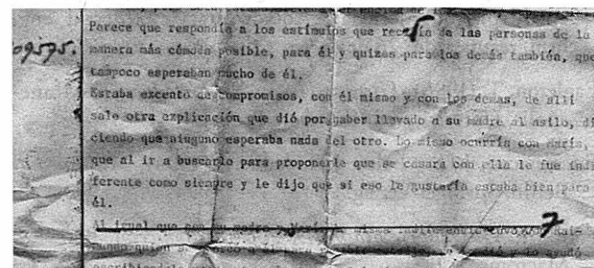 Parece que respondía a los estímulos que recibía de las personas de la
09595.
manera más cómoda posible, para él y quizas para los demás también, que
tampoco esperaban mucho de él.
Estaba excento de compromisos, con él mismo y con los demas, de allí
sale otra explicación que dió por haber llevado a su madre al asilo, di
ciendo que ninguno esperaba nada del otro. Lo mismo ocurría con María,
que al ir a buscarlo para proponerle que se casara con ella le fue indi
ferente como siempre y le dijo que si eso le gustaría estaba bien para
él.
Al igual que con su madre y María
7